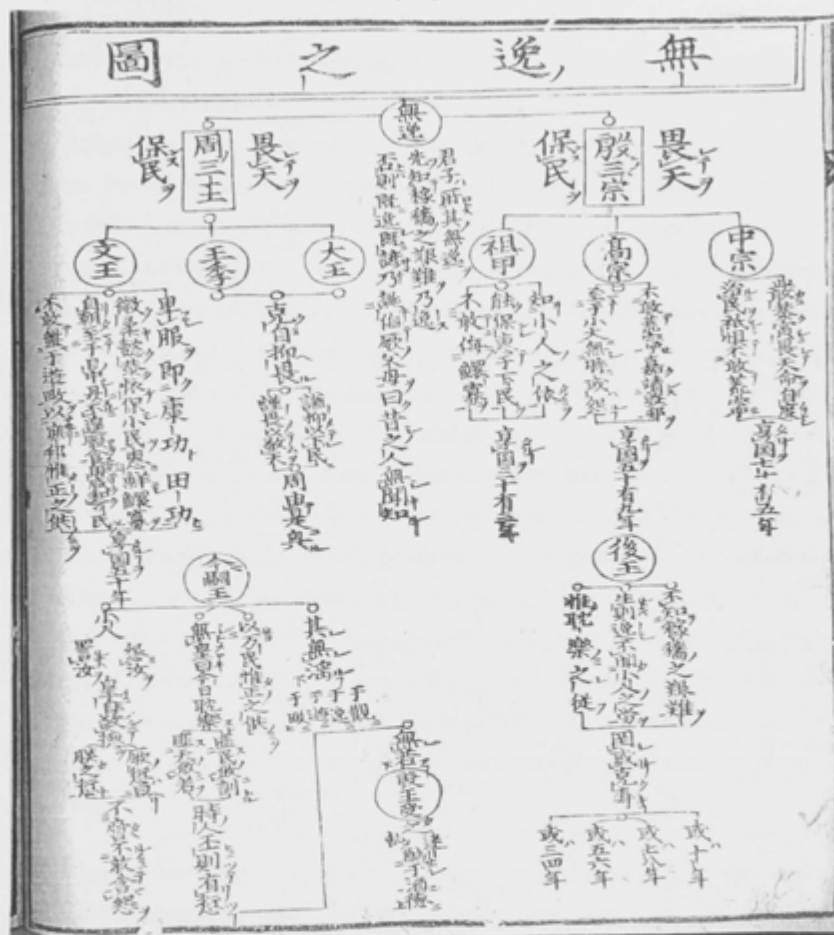 無逸之圖
無逸
君子所其無逸
先知稼穡之艱難乃逸
否則既逸既諺乃誕侮厥父母曰昔之人無聞知
畏天
殷三宗
保民
中宗
嚴恭寅畏天命自度
治民祗懼不敢荒寧
享國七十有五年
高宗
不敢荒寧嘉靖殷邦
至于小大無時或怨
享國五十有九年
祖甲
知小人之依
能保惠于下民
不敢侮鰥寡
享國三十有三年
後王
不知稼穡之艱難
生則逸不聞小人之勞
惟耽樂之從
罔或克壽
或十年
或七八年
或五六年
或三四年
畏天
周三王
保民
大王
王季
克自抑畏
周由是興
文王
卑服即康功田功
徽柔懿恭懷保小民惠鮮鰥寡
自朝至于日中昃不遑暇食咸和萬民
不敢盤于遊田以庶邦惟正之供
享國五十年
今嗣王
其無淫
于觀
于逸
于遊
于田
以万民惟正之供
無皇曰今日耽樂
匪民攸訓
匪天攸若
時人丕則有愆
無若殷王受之
酗于酒德
小人
怨汝
詈汝
皇自敬德
厥愆曰
朕之愆
不啻不敢含怒